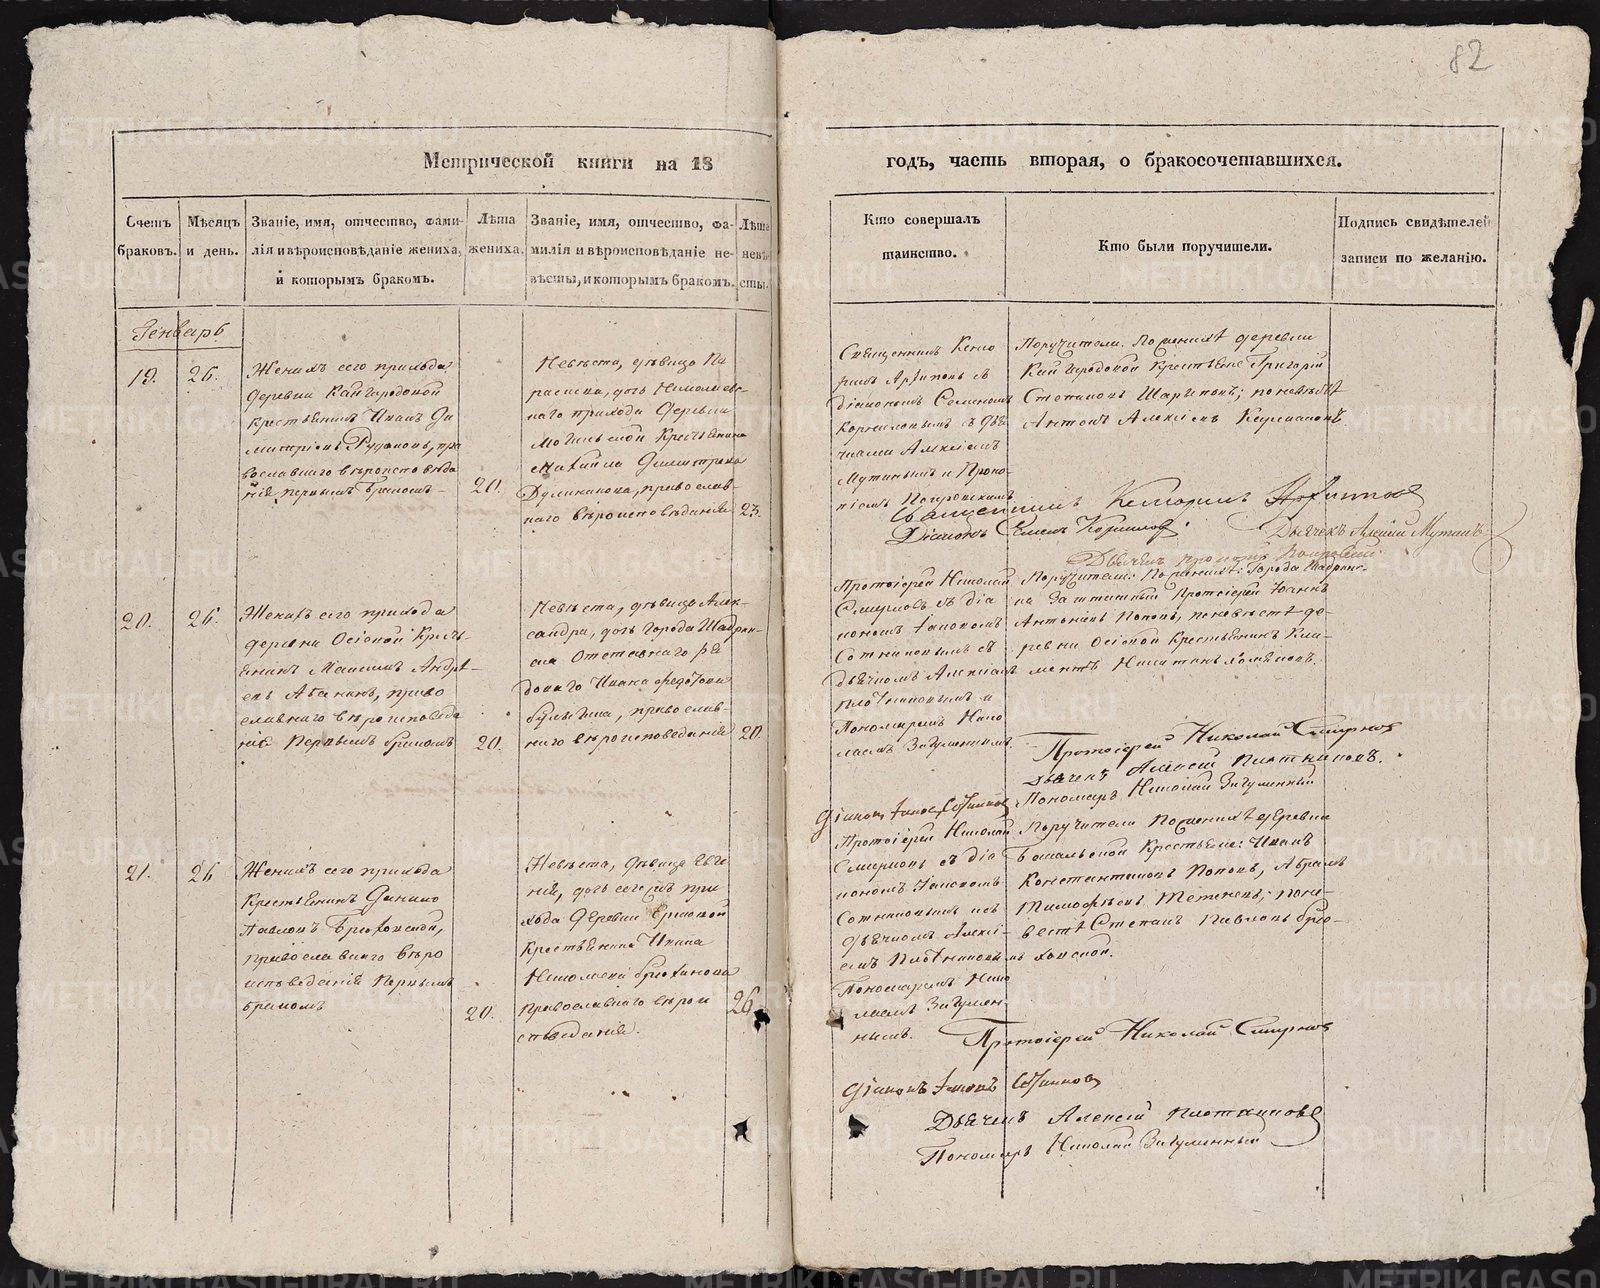 82
Метрической книги на 18
годъ, часть вторая, о бракосочетавшихся.
Счетъ браковъ.
Мѣсяцъ и день.
Званіе, имя, отчество, фами-
лія и вѣроисповѣданіе жениха,
и которымъ бракомъ.
Лѣта
жениха.
Званіе, имя, отчество, фа-
милія и вѣроисповѣданіе не-
вѣсты, и которымъ бракомъ.
Лѣта
невѣ
сты.
Кто совершалъ
таинство.
Кто были поручители.
Подпись свидѣтелей
записи по желанію.
Генварь
19. 26.
Женихъ сего прихода
деревни Кайгородовой
крестьянинъ Иванъ Ди
митріевъ Рудаковъ, пра
вославнаго вѣроисповѣда
нія, первымъ бракомъ
20.
Невѣста, дѣвица Па
раскева, дочь Николаевс
наго прихода деревни
крестьянина
Михаила Димитріева
православ-
наго вѣроисповѣданія
23.
Священникъ
діакономъ Семеномъ
Корниловымъ съ дья
чками Алексіемъ
Мутинымъ и Проко
піемъ
Поручители: по женихѣ деревни
Кайгородовой крестьяне Григорій
Степановъ; по невѣстѣ
Антонъ Алексіевъ
Священникъ
Діаконъ Семенъ Корниловъ
Дьячекъ Алексій Мутинъ
20. 26.
Женихъ сего прихода
деревни Осіновой Кресть
янинъ Максимъ Андре-
евъ Абакинъ, право
славнаго вѣроисповѣда
нія первымъ бракомъ
20.
Невѣста, дѣвица Алек-
сандра, дочь города Шадрин-
ска Отставнаго ря
доваго Ивана Федотова
Булыгина, православ-
наго вѣроисповѣданія
20.
Протоіерей Николай
Смирновъ съ діа
кономъ Іаковомъ
Сотниковымъ съ
дьячкомъ Алексіемъ
Плотниковымъ и
Пономаремъ Нико
лаемъ Загуменнымъ
Поручители: по женихѣ: города Шадринс-
ка Заштатный Протоіерей Іоаннъ
Антоніевъ Поповъ, по невѣстѣ де-
ревни Осіновой Крестьянинъ Кли-
ментъ Никитинъ
Протоіерей Николай Смирновъ
Дьячекъ Алексій Плотниковъ.
Діаконъ Іаковъ Сотниковъ
Пономарь Николай Загуменный
21. 26
Женихъ сего прихода
Крестьянинъ Данило
Павловъ Брюховскій,
православнаго вѣро
исповѣданія первымъ
бракомъ
20.
Невѣста, дѣвица Евге
нія, дочь сегожъ при
хода деревни Ершовой
Крестьянина Ивана
Николаева Брюханова
православнаго вѣрои
сповѣданія.
26
Протоіерей Николай
Смирновъ съ діа
кономъ Іаковомъ
Сотниковымъ и съ
дьячкомъ Алексі-
емъ Плотниковымъ
Пономаремъ Нико
лаемъ Загумен-
нымъ.
Поручители по женихѣ деревни
Крестьяне: Иванъ
Константиновъ Поповъ, Абрамъ
Тимофѣевъ; по не-
вестѣ Степанъ Павловъ Брю-
ховской.
Протоіерей Николай Смирновъ
Діаконъ Іаковъ Сотниковъ
Дьячекъ Алексій Плотниковъ
Пономарь Николай Загуменный
METRIKI.GASO-URAL.RU